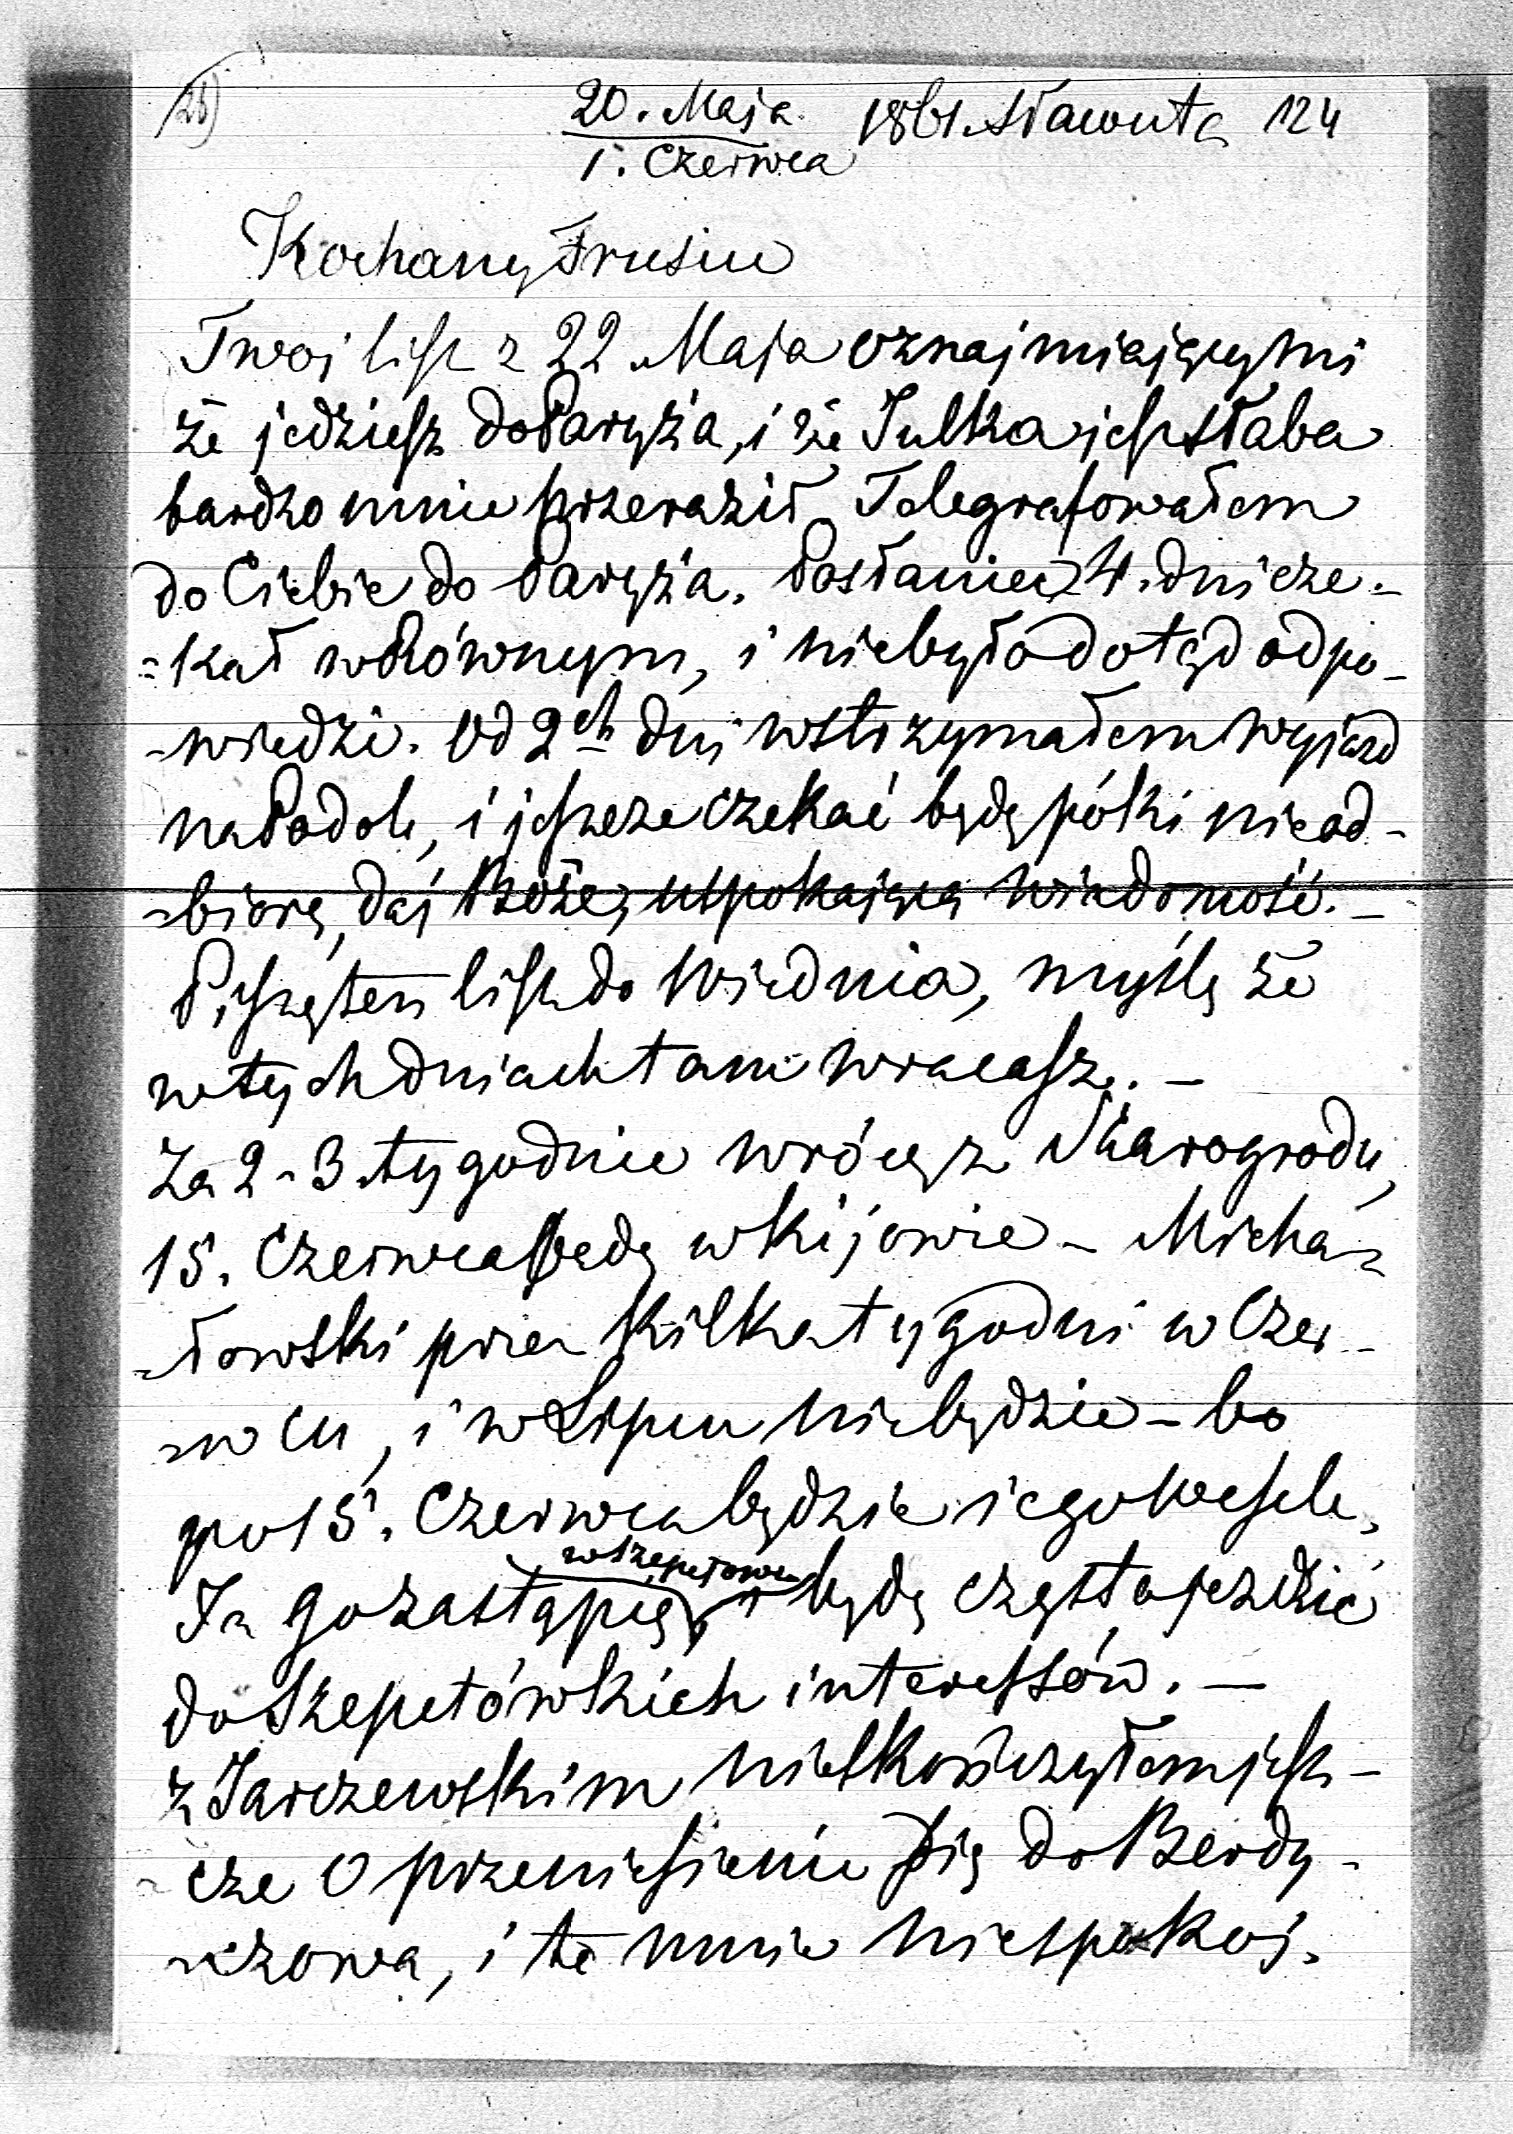 26)
20. Maja 1861. Sławuta 124
1. Czerwca
Kochany Frusiu
Twoj list z 22 Maja oznajmiający mi
że jedziesz do Paryża, i że Julka jest słaba
bardzo mnie przeraził Telegrafowałem
do Ciebie do Paryża. Posłaniec 4. dni cze-
-kał w Równym, i niebyło dotąd odpo-
-wiedzi. Od 2ch dni wstrzymałem wyjazd
na Podole, i jeszcze czekać będę póki nieod-
-biorę, daj Boże, uspokającą wiadomość. -
Piszę ten list do Wiednia, myślę że
w tych dniach tam wracasz. -
Za 2-3 tygodnie wrócę z Szarogrodu,
15. Czerwca będę w Kijowie - Micha-
-łowski przez kilka tygodni w Czer-
-wcu, i w Lipcu niebędzie - bo
po 15. Czerwca będzie iego wesele,
w Szepetowce
Ja go zastąpię, i będę często jezdzić
do Szepetówkich interessów. -
z Jarczewskim nieskończyłem jesz-
-cze o przeniesieniu się do Berdy-
-czowa, i to mnie niespokoj-